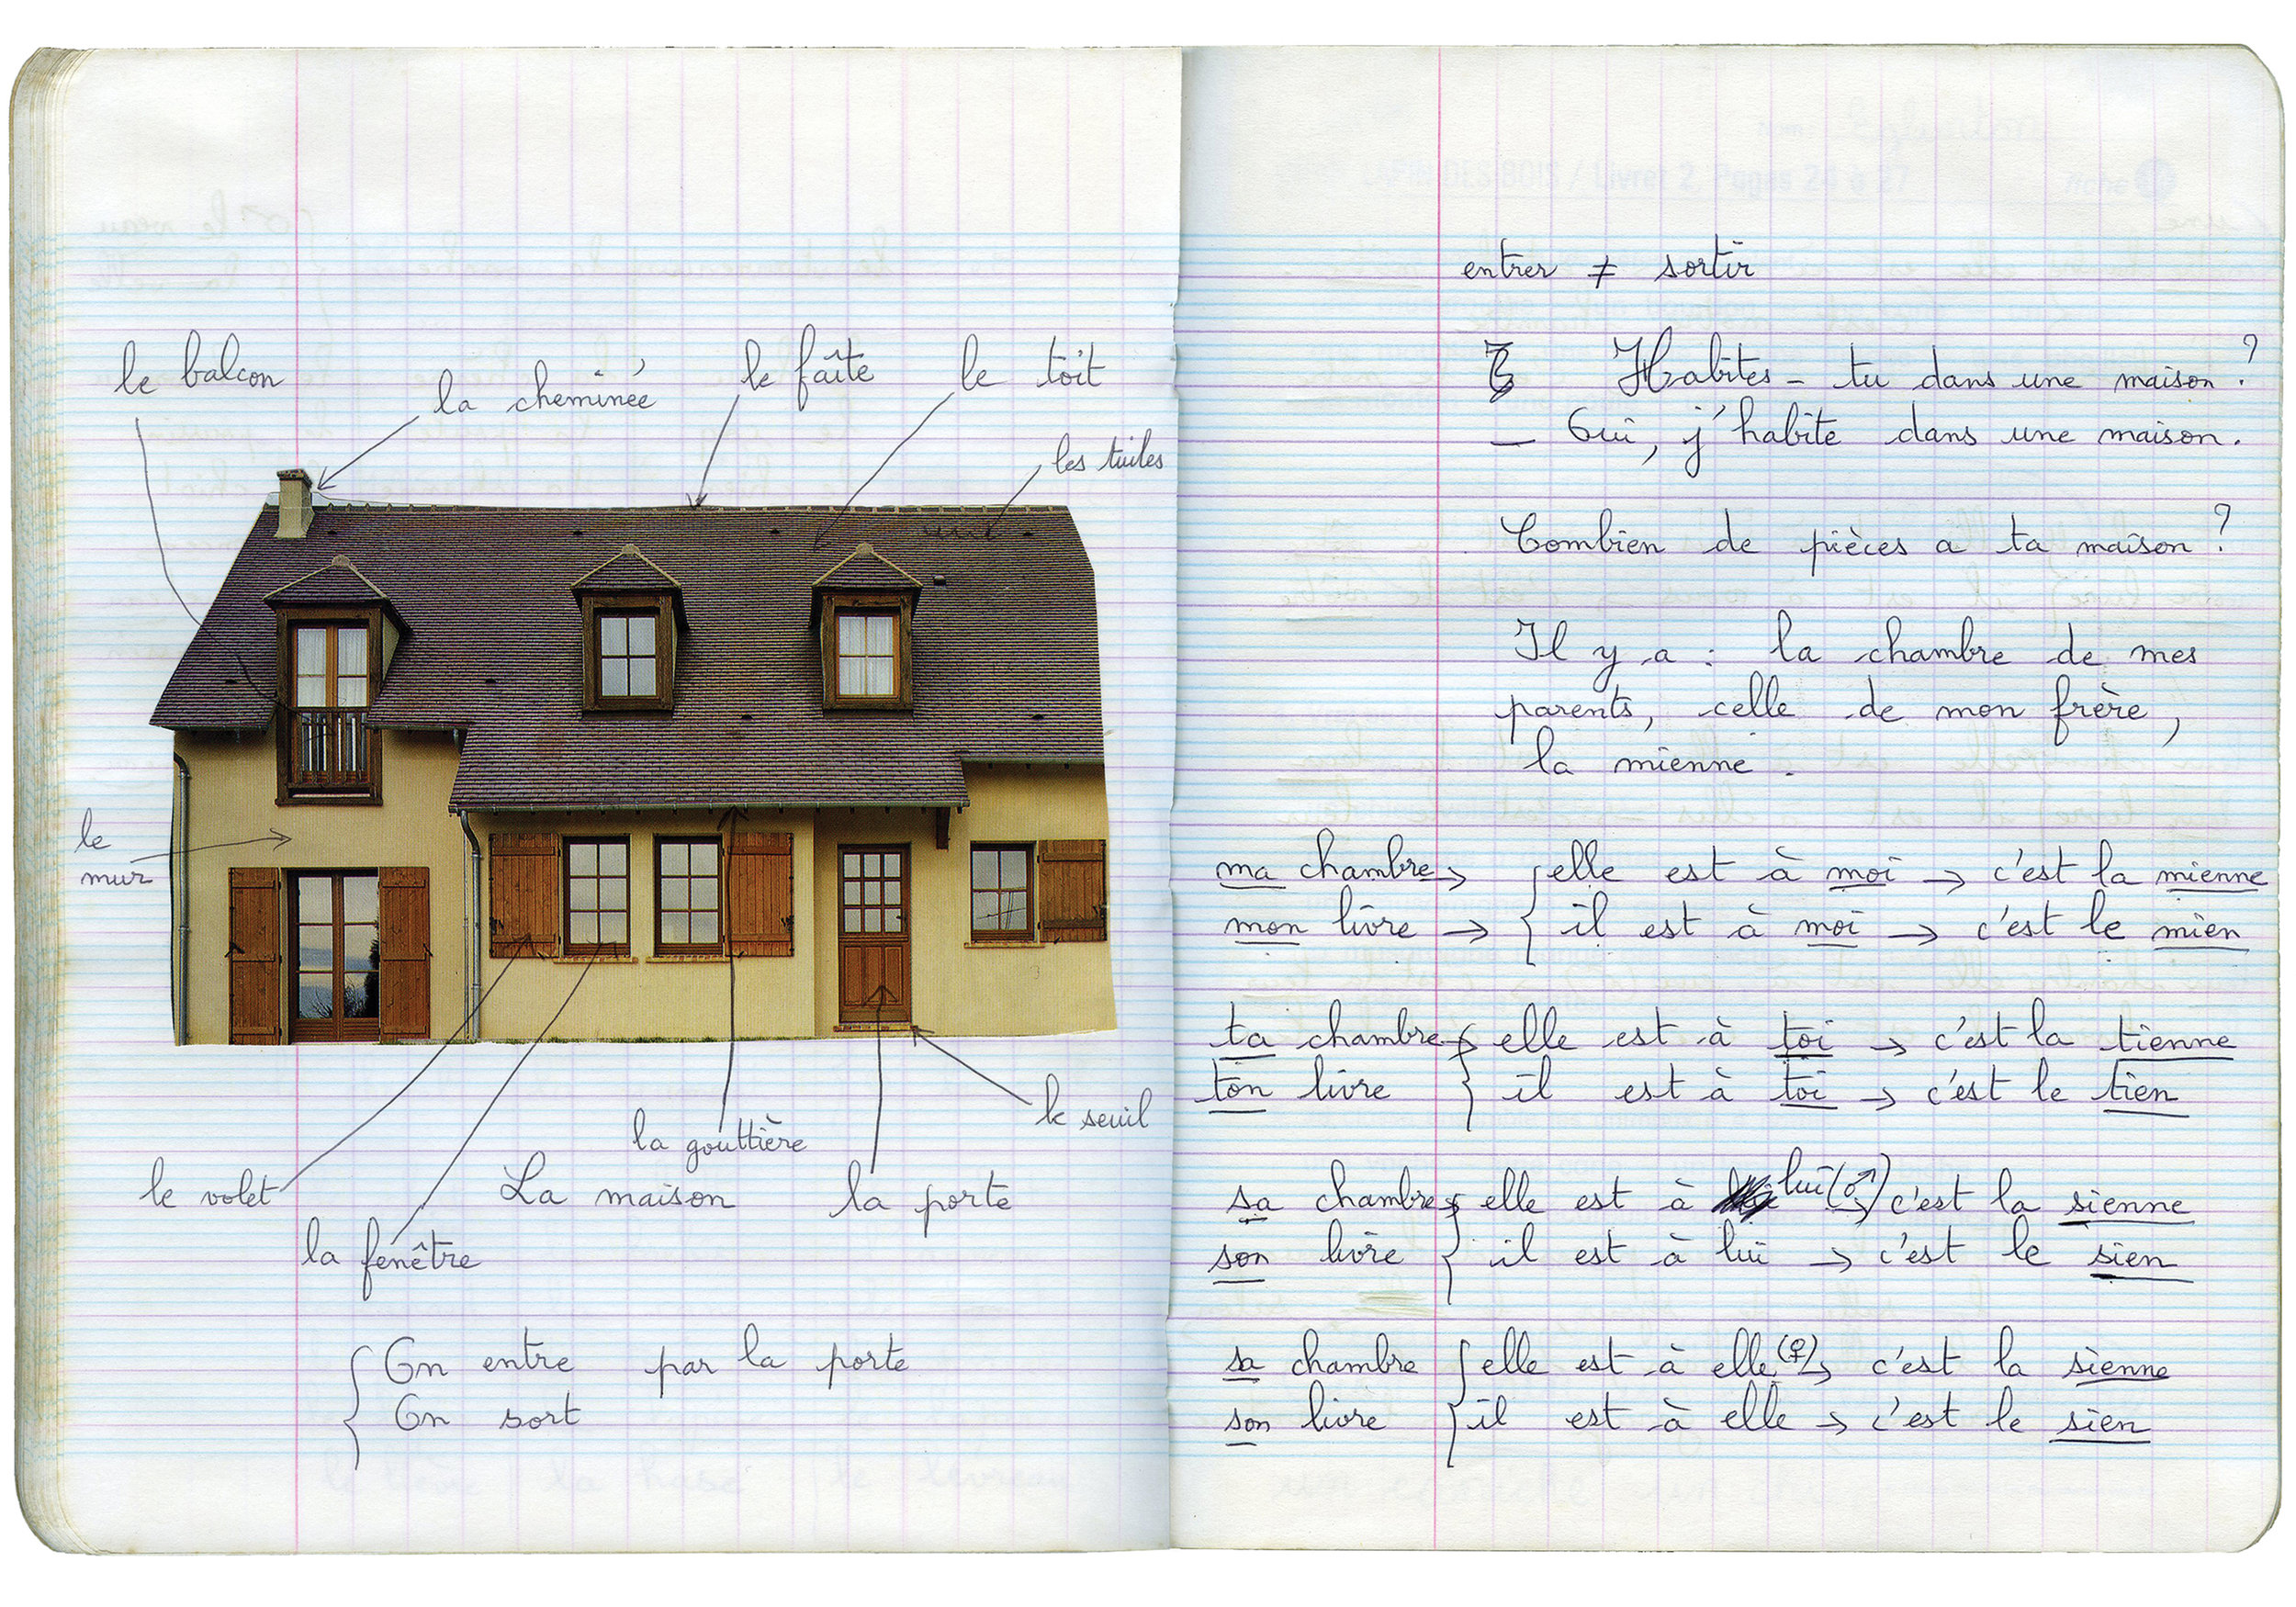 le balcon
la cheminée
le faîte
le toit
les tuiles
le
mur
le seuil
la gouttière
le volet
La maison
la porte
la fenêtre
On entre par la porte
On sort
entrer ≠ sortir
Habites-tu dans une maison ?
_ Oui, j'habite dans une maison.
Combien de pièces a ta maison ?
Il y a : la chambre de mes
parents, celle de mon frère,
la mienne.
ma chambre → { elle est à moi → c'est la mienne
mon livre → { il est à moi → c'est le mien
ta chambre → { elle est à toi → c'est la tienne
ton livre { il est à toi → c'est le tien
sa chambre → { elle est à lui (♂) → c'est la sienne
son livre { il est à lui → c'est le sien
sa chambre { elle est à elle (♀) → c'est la sienne
son livre { il est à elle → c'est le sien